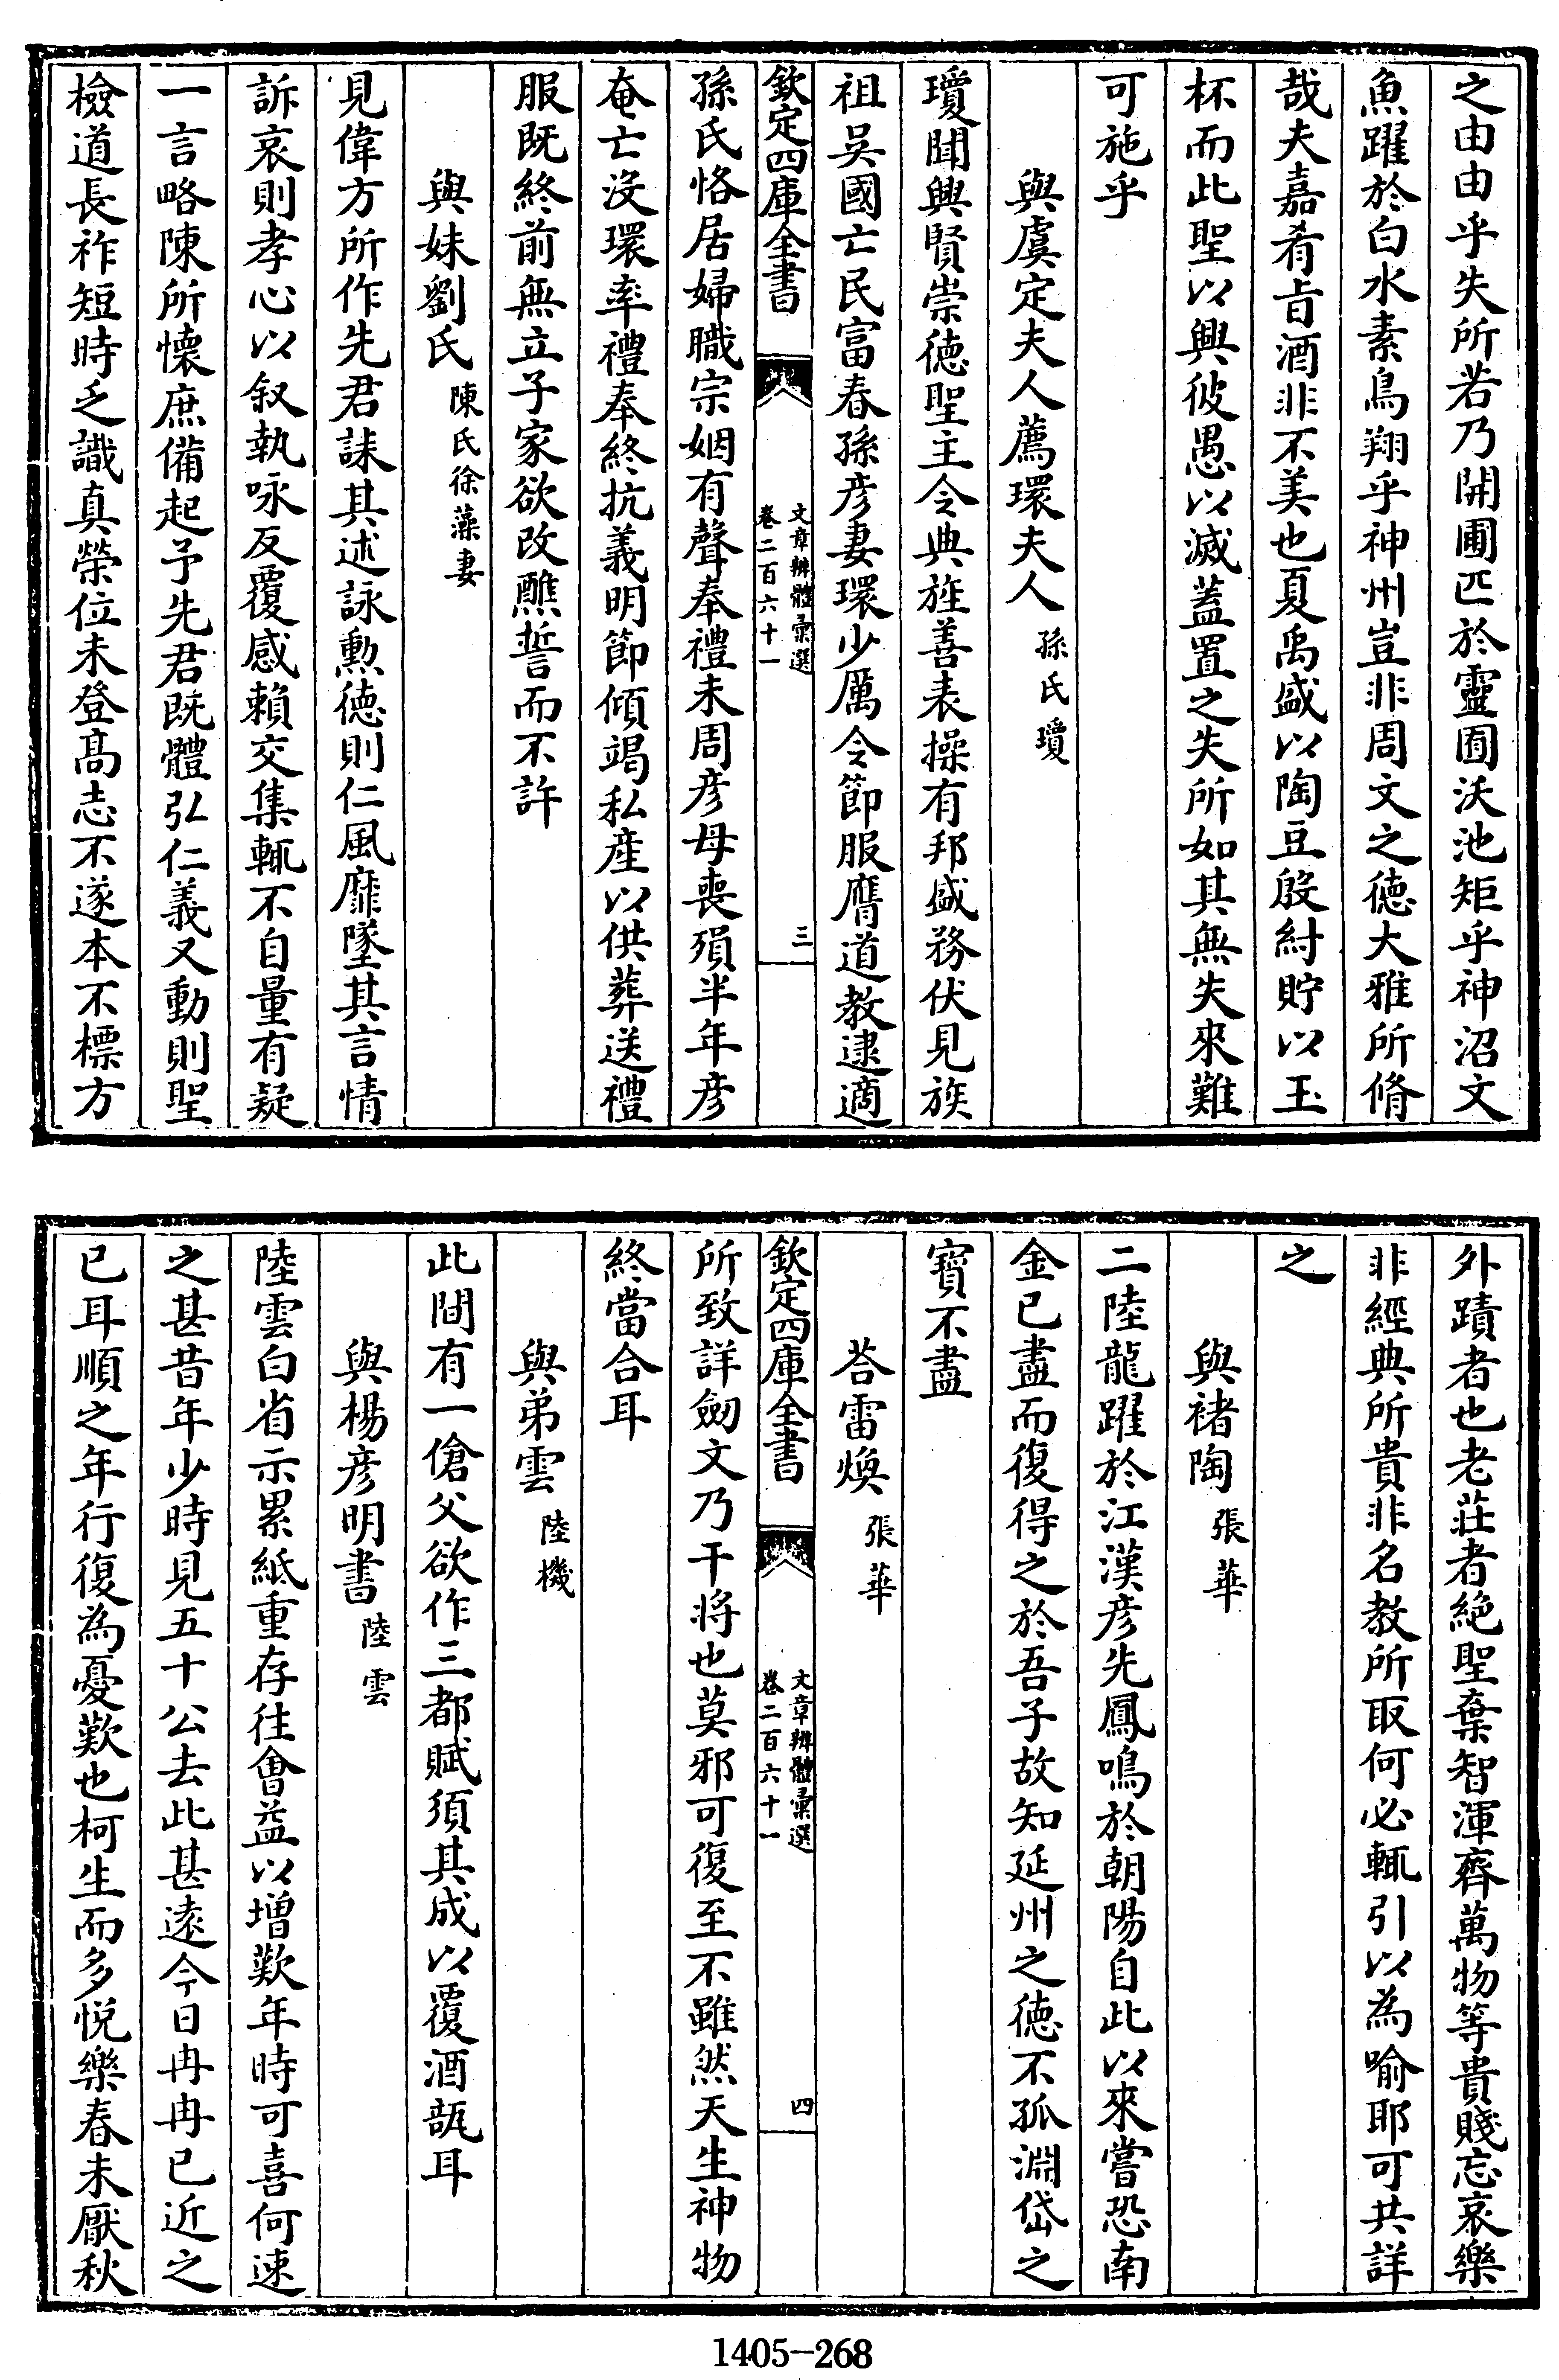 之由由乎失所若乃開圃匹於靈囿沃池矩乎神沼文
魚躍於白水素鳥翔乎神州豈非周文之德大雅所脩
哉夫嘉肴旨酒非不美也夏禹盛以陶豆殷紂貯以玉
杯而此聖以興彼愚以滅蓋置之失所如其無失來難
可施乎
與虞定夫人薦環夫人 孫氏瓊
瓊聞興賢崇德聖主令典旌善表操有邦盛務伏見族
祖吳國亡民富春孫彥妻環少厲令節服膺道教逮適
欽定四庫全書
文章辨體彙選
卷二百六十一
三
孫氏恪居婦職宗姻有聲奉禮未周彥母喪殞半年彥
奄亡沒環率禮奉終抗義明節傾竭私產以供葬送禮
服既終前無立子家欲改醮誓而不許
與妹劉氏 陳氏徐藻妻
見偉方所作先君誄其述詠勲德則仁風靡墜其言情
訴哀則孝心以叙執咏反覆感賴交集輒不自量有疑
一言略陳所懷庶備起予先君既體弘仁義又動則聖
檢道長祚短時乏識真榮位未登髙志不遂本不標方
外蹟者也老莊者絶聖棄智渾齊萬物等貴賤忘哀樂
非經典所貴非名教所取何必輒引以為喻耶可共詳
之
與褚陶 張華
二陸龍躍於江漢彥先鳳鳴於朝陽自此以來嘗恐南
金已盡而復得之於吾子故知延州之德不孤淵岱之
寶不盡
荅雷煥 張華
欽定四庫全書
文章辨體彙選
卷二百六十一
四
所致詳劒文乃干將也莫邪可復至不雖然天生神物
終當合耳
與弟雲 陸機
此間有一傖父欲作三都賦須其成以覆酒瓿耳
與楊彥明書 陸雲
陸雲白省示累紙重存往會益以增歎年時可喜何速
之甚昔年少時見五十公去此甚遠今日冉冉已近之
已耳順之年行復為憂歎也柯生而多悅樂春未厭秋
1405-268